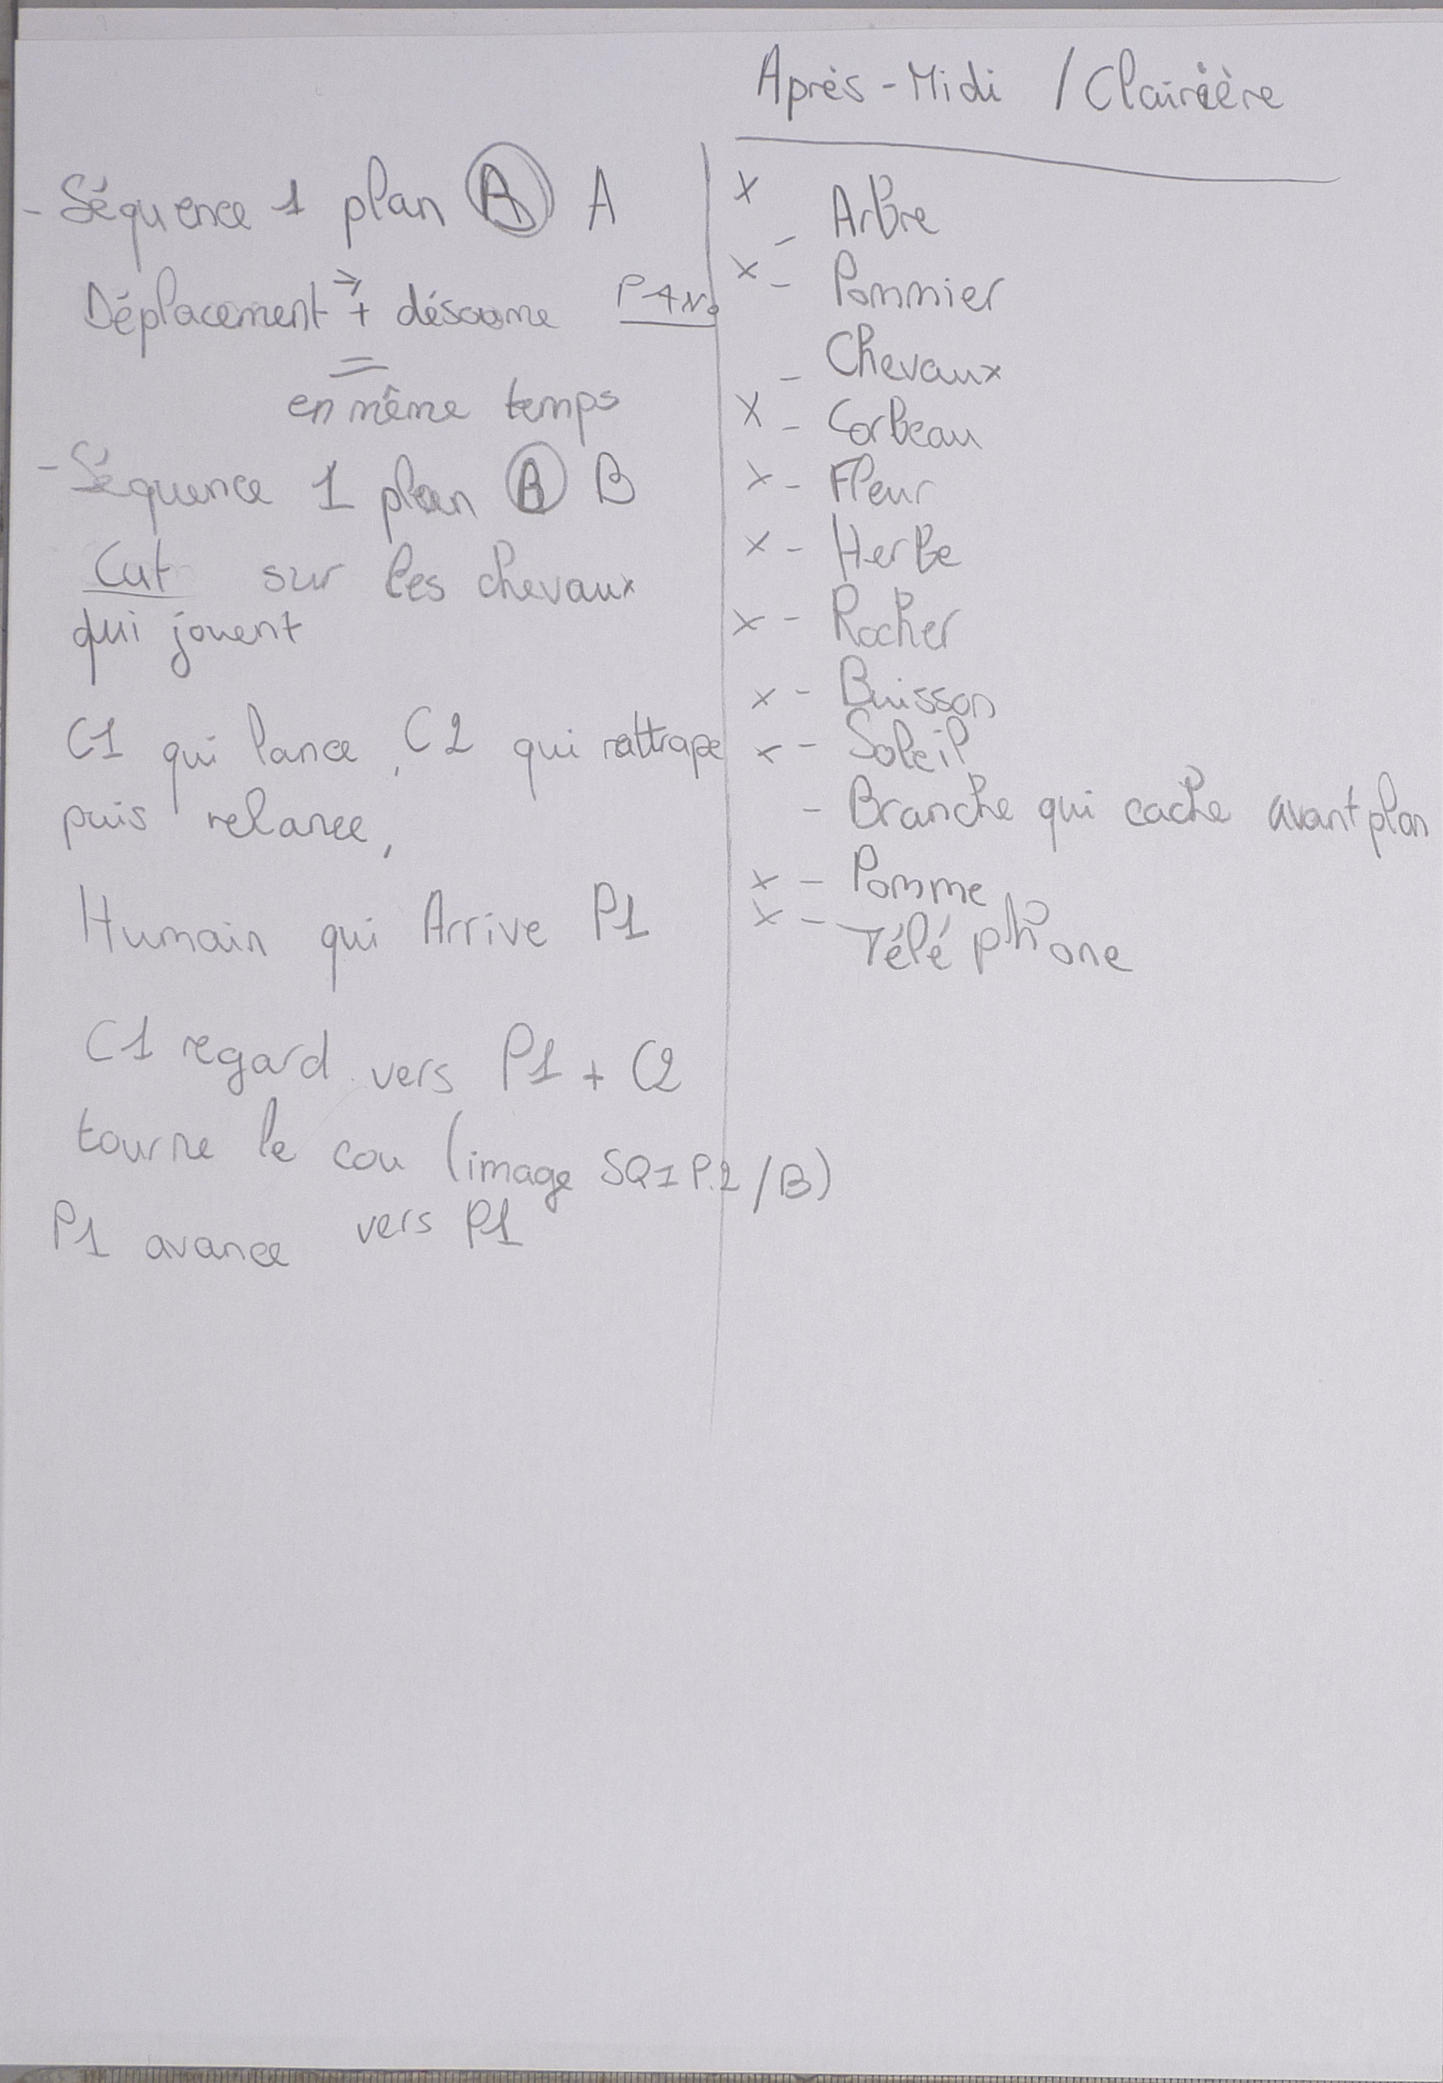 Après-Midi / Clairière
- Séquence 1 plan A A
Déplacement + désoome PANO
en même temps
- Séquence 1 plan B B
Cut sur les chevaux
qui jouent
C1 qui lance, C2 qui rattrape
puis relance,
Humain qui Arrive P1
C1 regard vers P1 + C2
tourne le cou (image SQ1 P.2 / B)
P1 avance vers P1
x - Arbre
x - Pommier
- Chevaux
x - Corbeau
x - Fleur
x - Herbe
x - Rocher
x - Buisson
x - Soleil
- Branche qui cache avant plan
x - Pomme
x - Téléphone